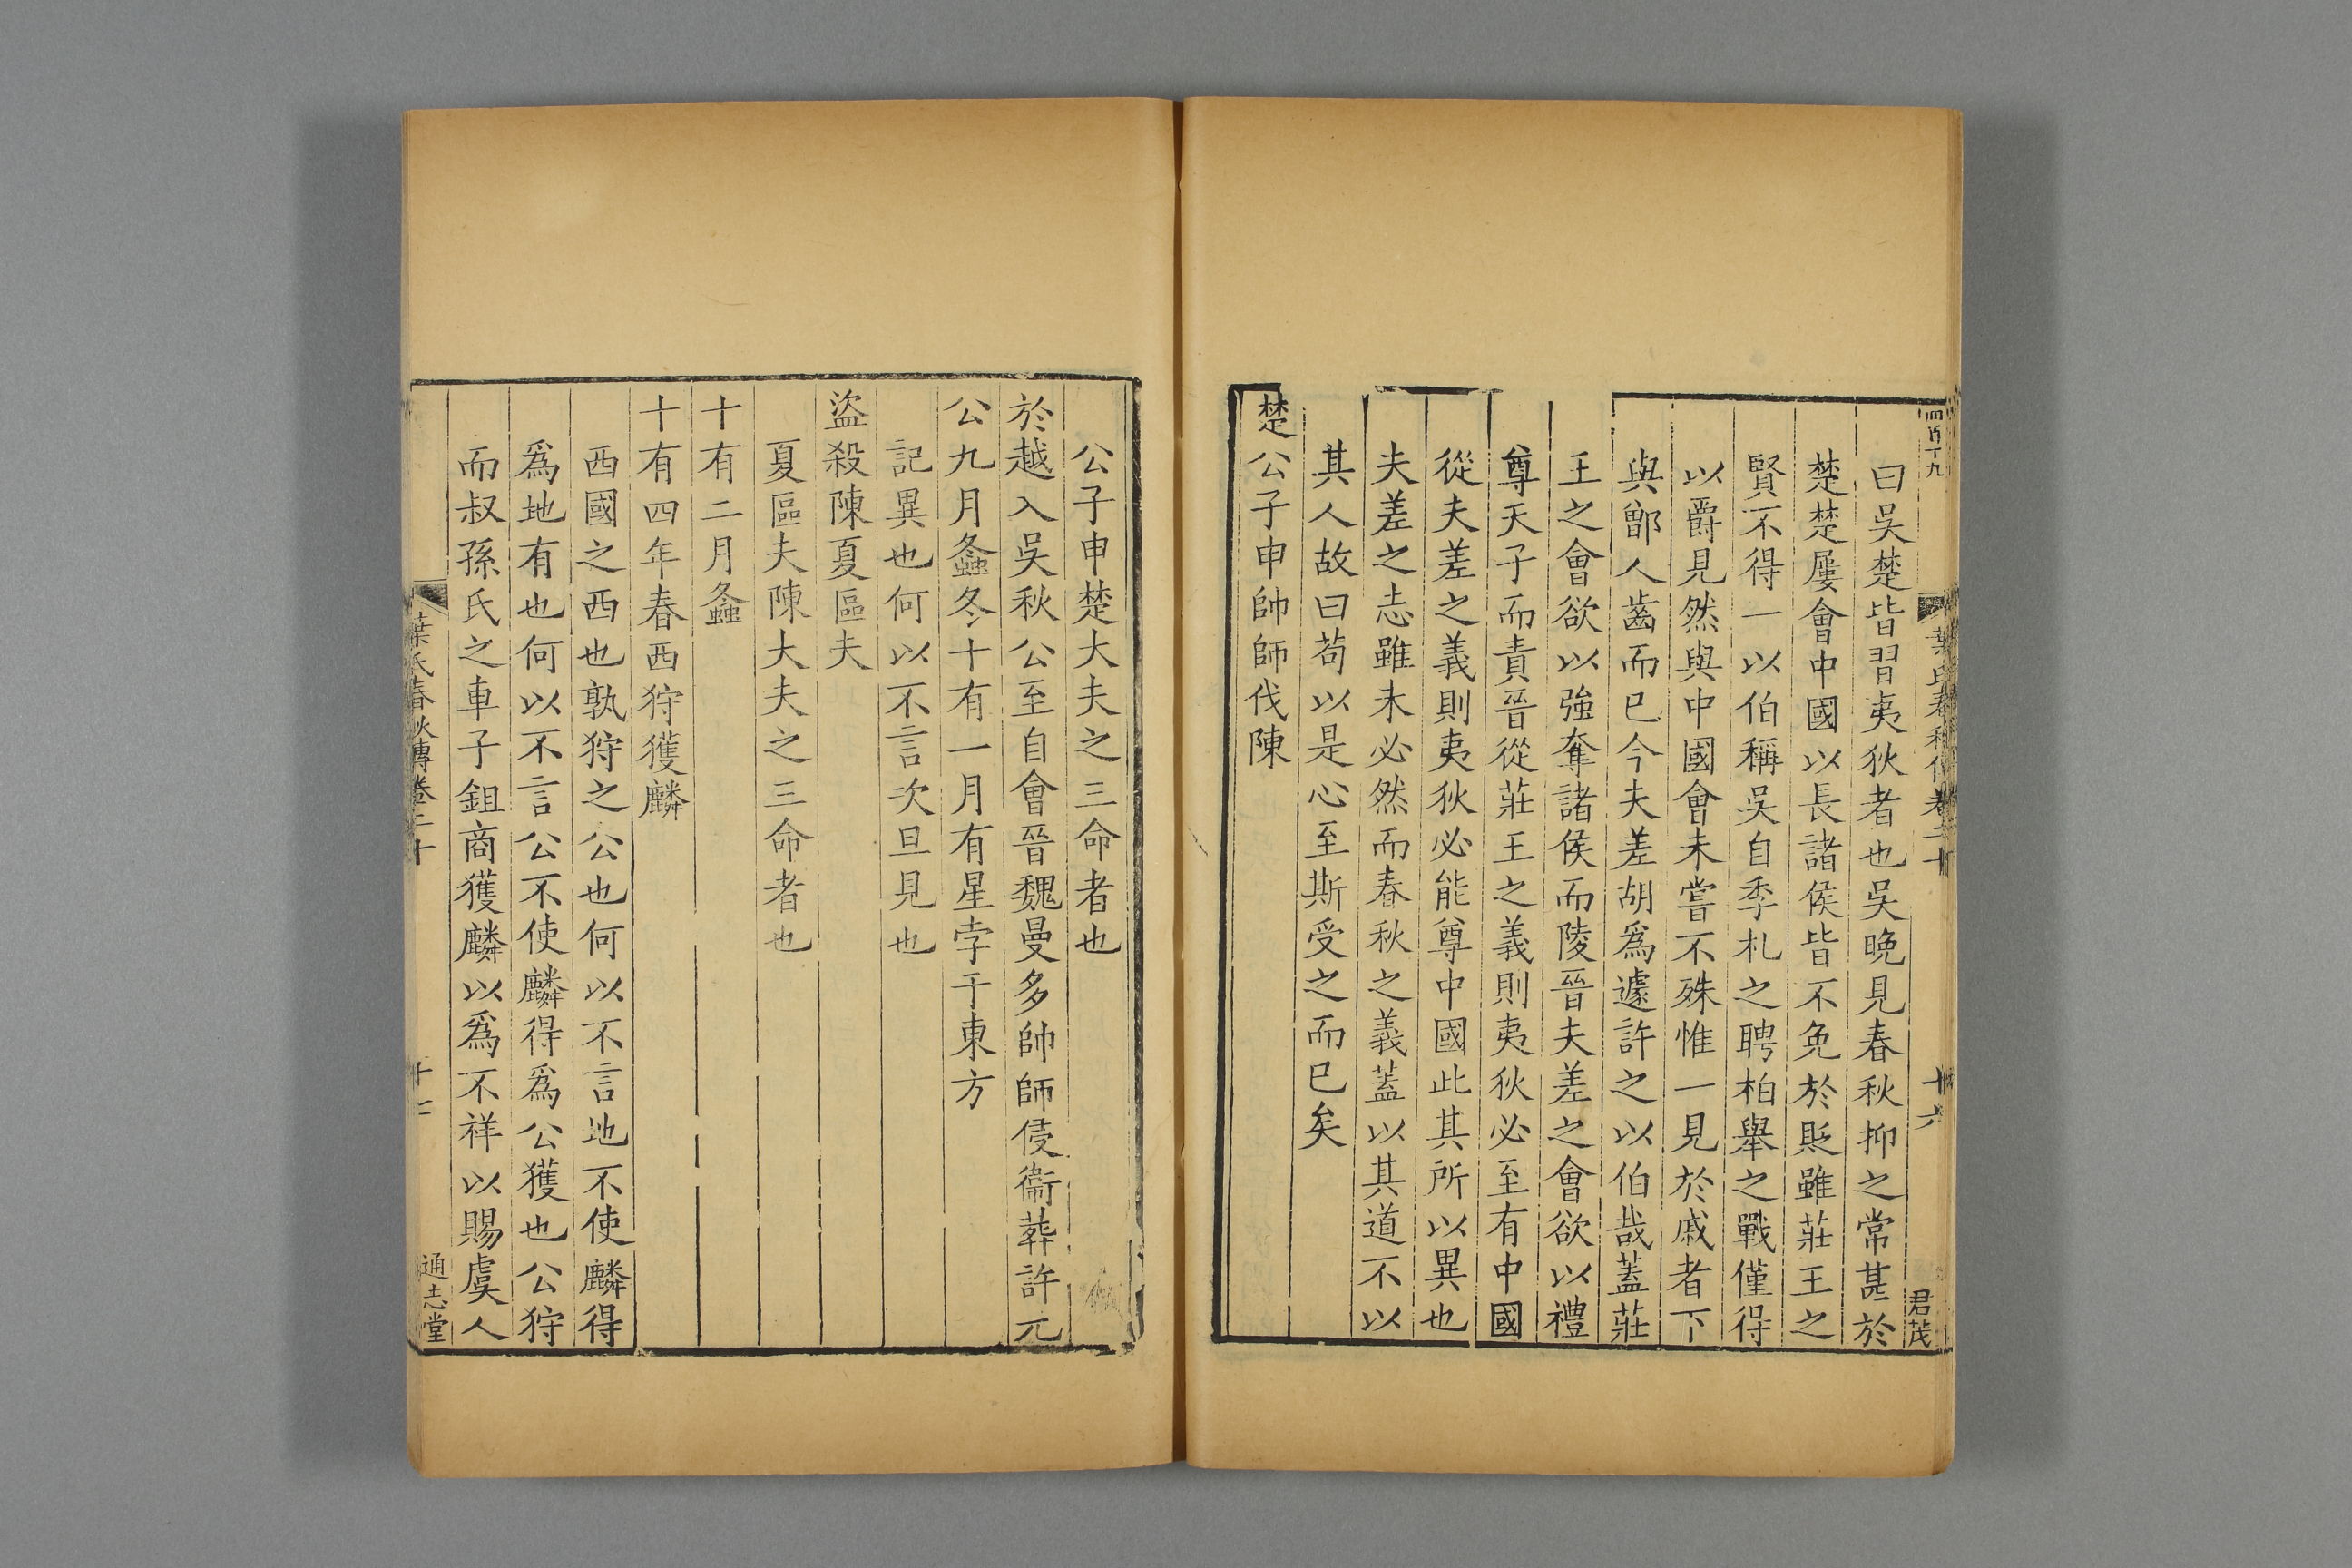 四百十九
葉氏春秋傳卷二十
十六
君茂
曰吳楚皆習夷狄者也吳晩見春秋抑之常甚於
楚楚屢會中國以長諸侯皆不免於貶雖莊王之
賢不得一以伯稱吳自季札之聘柏舉之戰僅得
以爵見然與中國會未嘗不殊惟一見於戚者下
與鄫人齒而已今夫差胡爲遽許之以伯哉蓋莊
王之會欲以強奪諸侯而陵晉夫差之會欲以禮
尊天子而責晉從莊王之義則夷狄必至有中國
從夫差之義則夷狄必能尊中國此其所以異也
夫差之志雖未必然而春秋之義蓋以其道不以
其人故曰苟以是心至斯受之而已矣
楚公子申帥師伐陳
公子申楚大夫之三命者也
於越入吳秋公至自會晉魏曼多帥師侵衞葬許元
公九月螽冬十有一月有星孛于東方
記異也何以不言次旦見也
盜殺陳夏區夫
夏區夫陳大夫之三命者也
十有二月螽
十有四年春西狩獲麟
西國之西也孰狩之公也何以不言地不使麟得
爲地有也何以不言公不使麟得爲公獲也公狩
而叔孫氏之車子鉏商獲麟以爲不祥以賜虞人
葉氏春秋傳卷二十
十七
通志堂